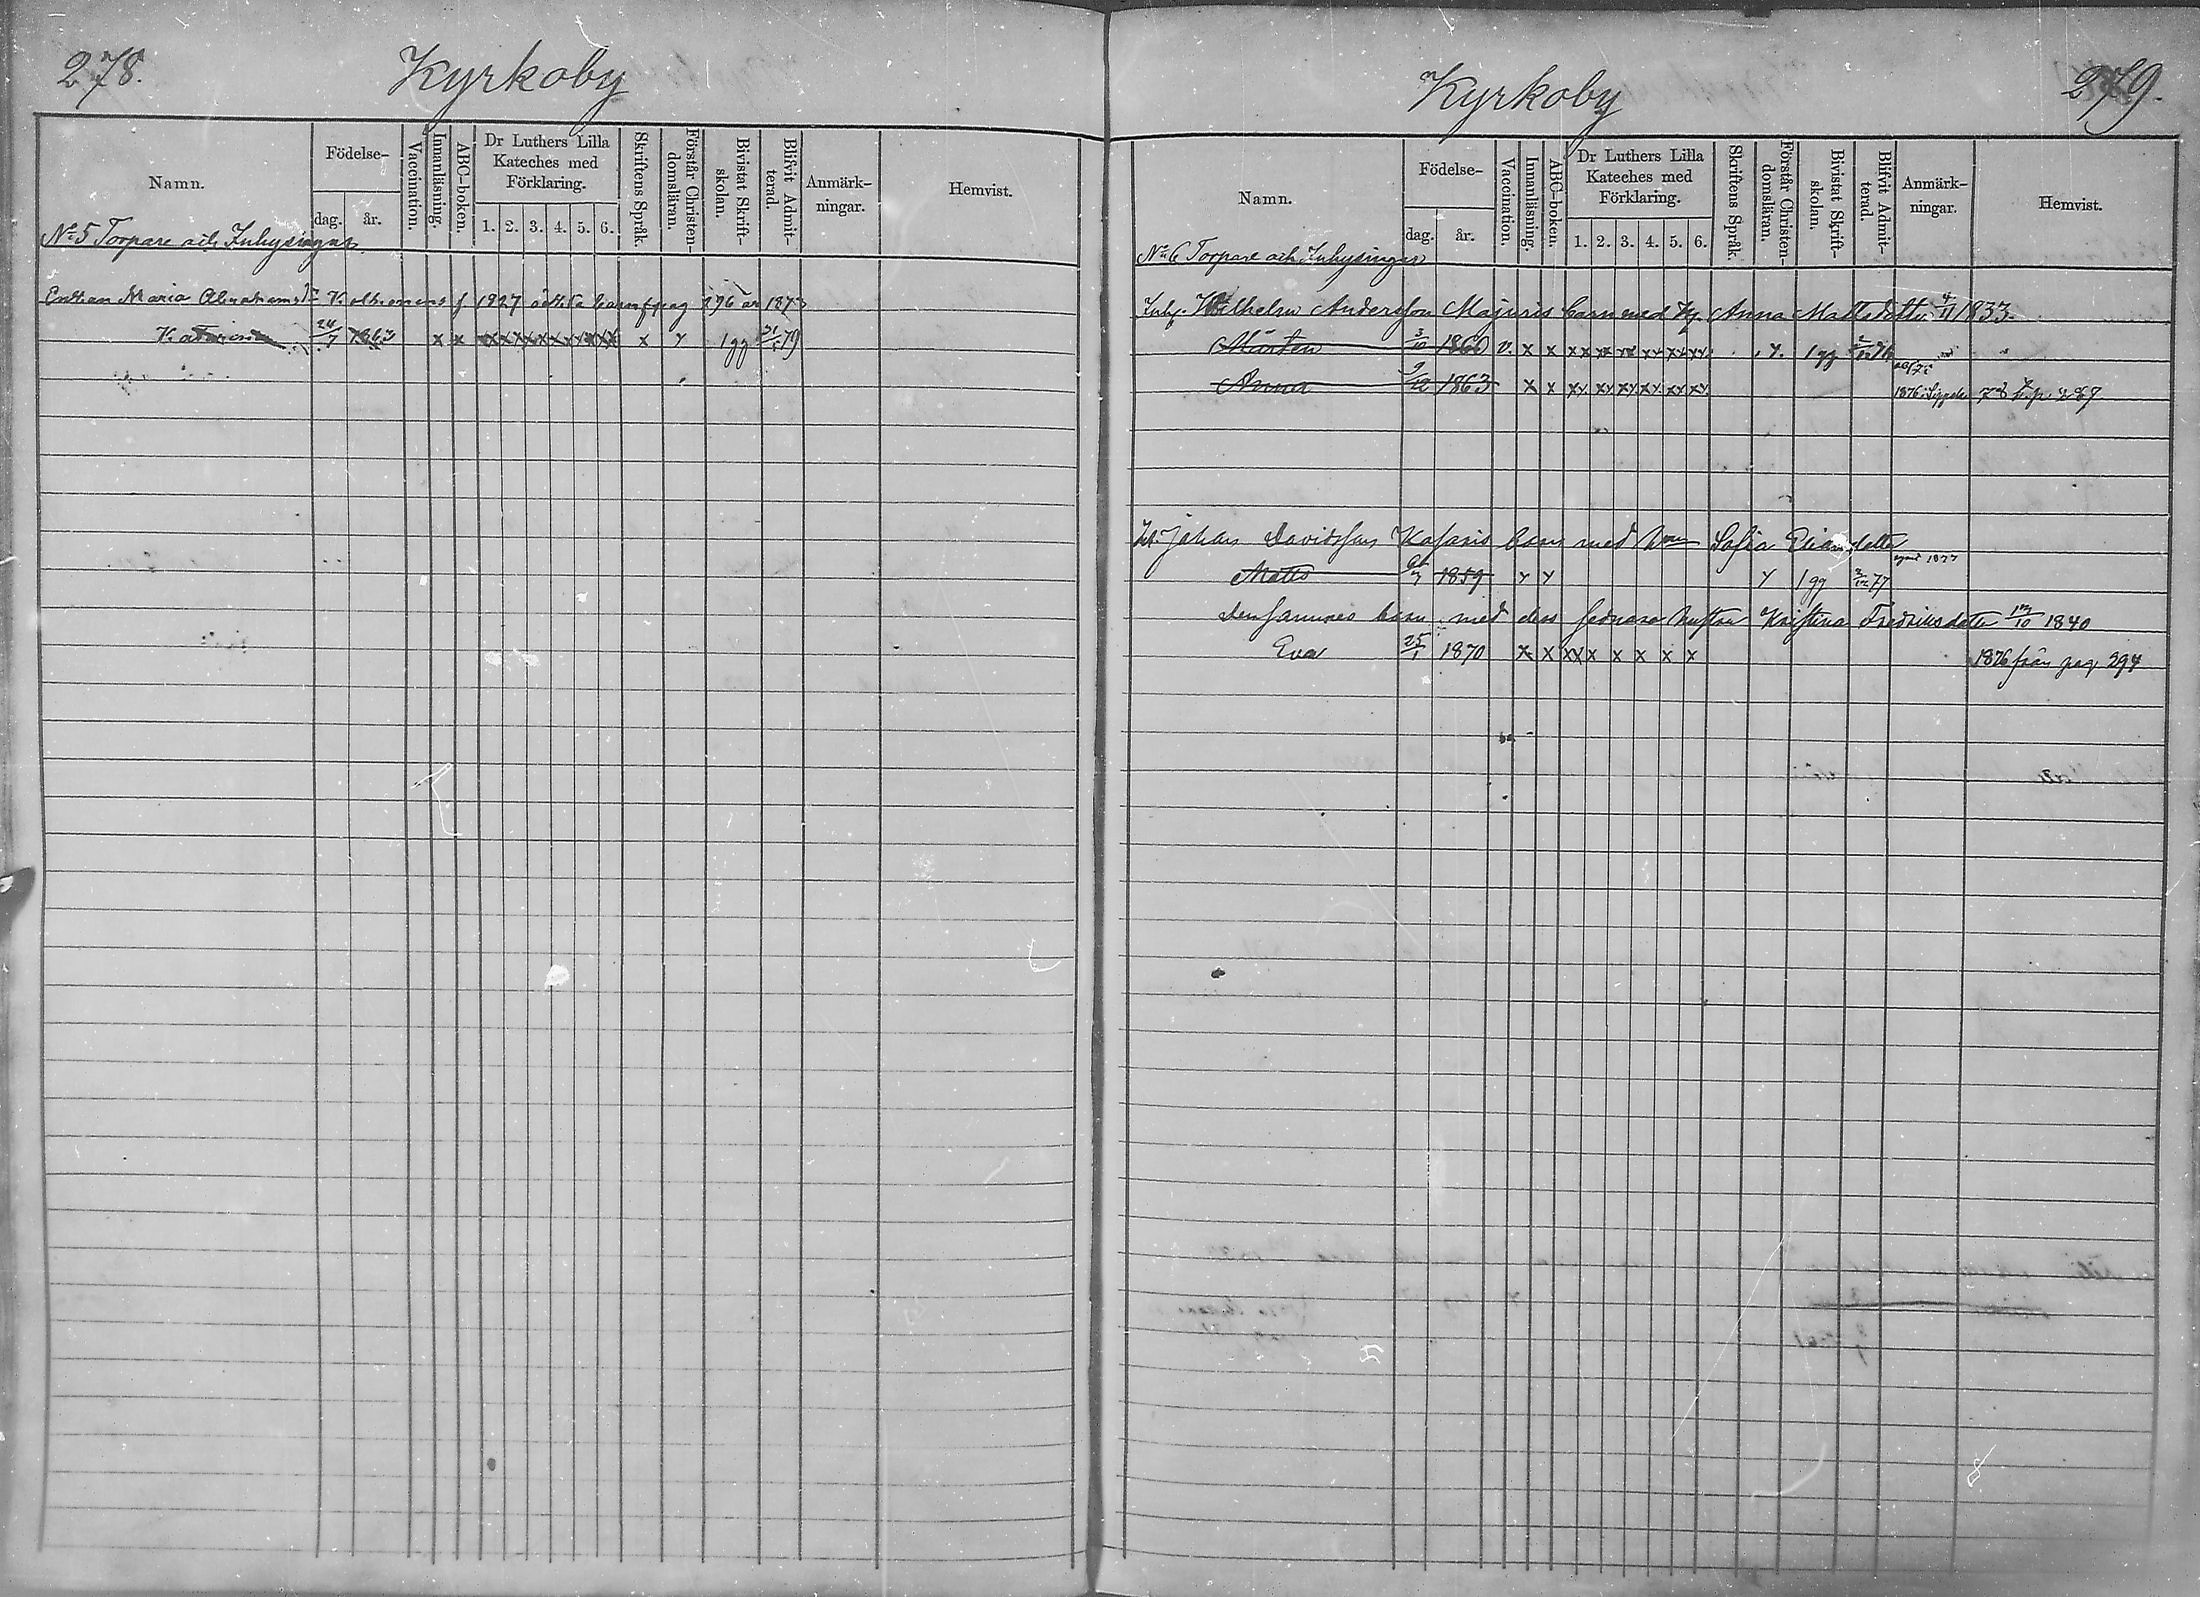 278.
Kyrkoby
Namn.
Födelse-
dag.
år.
Vaccination.
Innanläsning.
ABC-boken.
Dr Luthers Lilla
Kateches med
Förklaring.
1. 2. 3. 4. 5. 6.
Skriftens Språk.
Förstår Christen-
domsläran.
Bivistat Skrift-
skolan.
Blifvit Admit-
terad.
Anmärk-
ningar.
Hemvist.
No 5 Torpare och Inhysingar
Enkan Maria Abrahamsdr f 1827 barn pag 296 år 1873
Katarina 24/7 1863 x x xx xx xx xx xx xx x y 1 gg 31/5 79
Kyrkoby
279.
Namn.
Födelse-
dag.
år.
Vaccination.
Innanläsning.
ABC-boken.
Dr Luthers Lilla
Kateches med
Förklaring.
1. 2. 3. 4. 5. 6.
Skriftens Språk.
Förstår Christen-
domsläran.
Bivistat Skrift-
skolan.
Blifvit Admit-
terad.
Anmärk-
ningar.
Hemvist.
No 6 Torpare och Inhysingar
Inhy. Wilhelm Andersson Majuris barn med Hu Anna Mattsdotter 4/11 1833.
Mårten 3/10 1860 v. x x xx xx xx xy xy xy y. 1 gg 76
Anna 9/12 1863 x x xy xy xy xy xy xy 1876 p. 287
Johan Davidsson Kasaris barn med Sofia Eliasdotter
Matts 1859 y y y 1 gg 77
Densammes barn med dess sednare hustru Kristina Fredriksdotter 1840
Eva 25/1 1870 x x xx x x x x x 1876 från pag 294